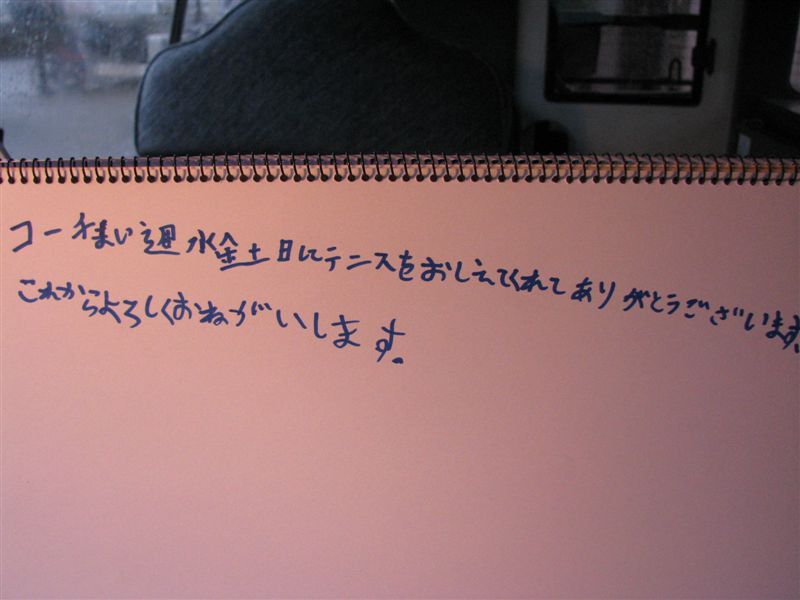 コーチまい週水金土日にテニスをおしえてくれてありがとうございます。
これからよろしくおねがいします。